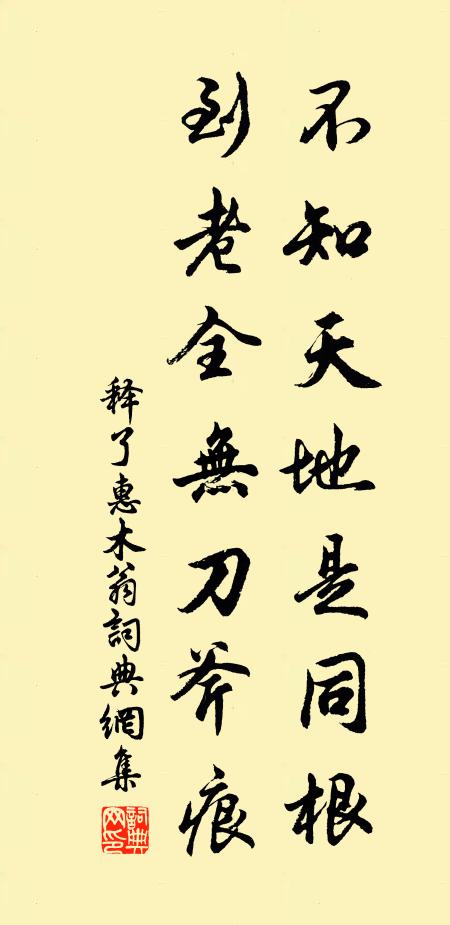 不知天地是同根
到老全無刀斧痕
释了惠木翁詞典網集
詞典網印